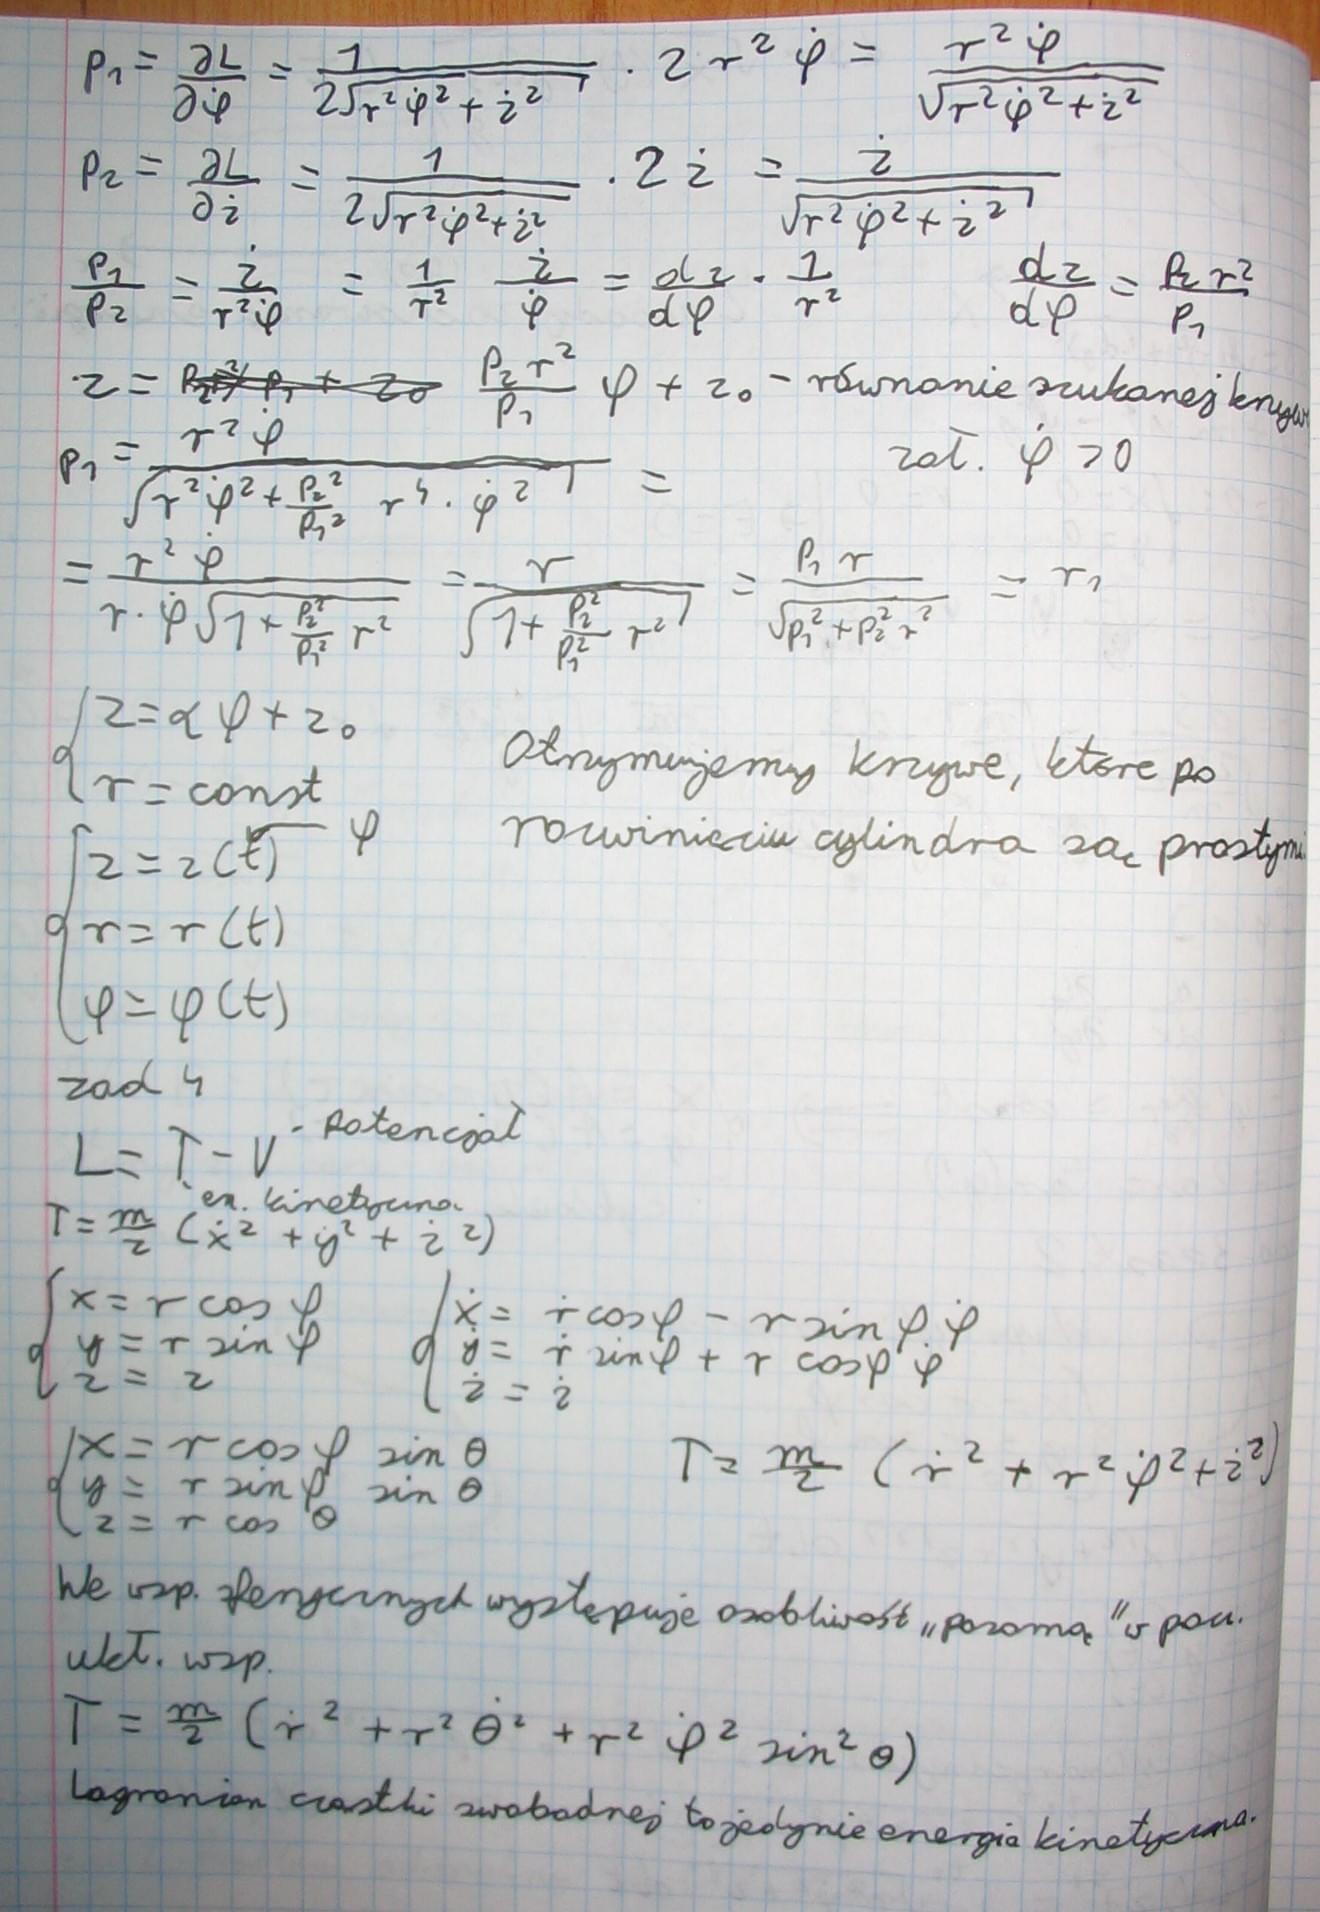 p₁ = ∂L/∂φ̇ = 1/(2√(r²φ̇² + ż²)) · 2r²φ̇ = r²φ̇/√(r²φ̇² + ż²)
p₂ = ∂L/∂ż = 1/(2√(r²φ̇² + ż²)) · 2ż = ż/√(r²φ̇² + ż²)
p₁/p₂ = ż/(r²φ̇) = 1/r² ż/φ̇ = dz/dφ · 1/r² dz/dφ = p₂r²/p₁
z = p₂r²/p₁ φ + z₀ - równanie szukanej krzyw
zał. φ̇ > 0
p₁ = r²φ̇/√(r²φ̇² + p₂²/p₁² r⁴ · φ̇²) =
= r²φ̇/(r·φ̇√(1 + p₂²/p₁² r²)) = r/√(1 + p₂²/p₁² r²) = p₁r/√(p₁² + p₂²r²) = r₁
{ z = αφ + z₀
r = const
Otrzymujemy krzywe, które po
rozwinięciu cylindra są prostymi.
{ z = z(t) φ
r = r(t)
φ = φ(t)
zad 4
L = T - V - potencjał
en. kinetyczna
T = m/2 (ẋ² + ẏ² + ż²)
{ x = r cos φ { ẋ = ṙ cosφ - r sinφ φ̇
y = r sin φ ẏ = ṙ sinφ + r cosφ φ̇
z = z ż = ż
{ x = r cosφ sin θ
y = r sinφ sin θ
z = r cos θ
T = m/2 (ṙ² + r²φ̇² + ż²)
We wsp. sferycznych występuje osobliwość „pozorna" w pocz.
ukł. wsp.
T = m/2 (ṙ² + r² θ̇² + r² φ̇² sin² θ)
Lagranian cząstki swobodnej to jedynie energia kinetyczna.